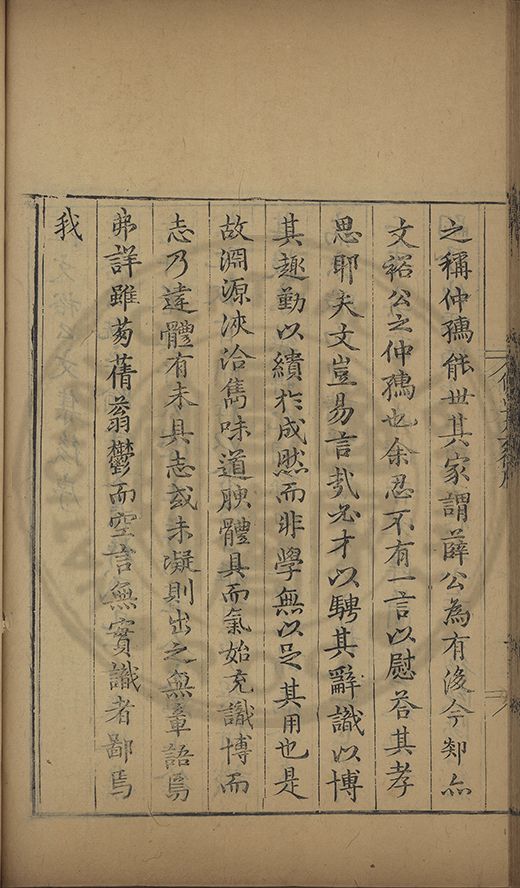 之稱仲孺能世其家謂薛公為有後今郯亦
文裕公之仲孺也余忍不有一言以慰荅其孝
思耶夫文豈易言哉必才以騁其辭識以博
其趣勤以績於成然而非學無以足其用也是
故淵源浹洽雋味道腴體具而氣始充識博而
志乃達體有未具志或未凝則出之無章語焉
弗詳雖芴蒨蓊鬱而空言無實識者鄙焉
我